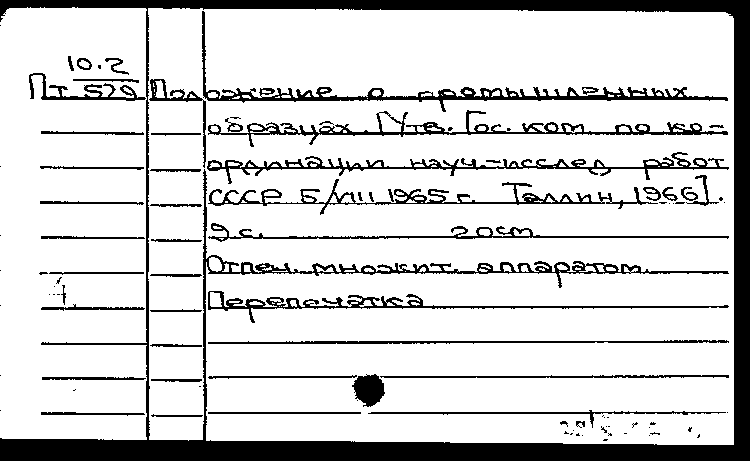 10.2
Пт 529 Положение о промышленных
образцах. [Утв. Гос. ком. по ко-
ординации науч.-исслед. работ
СССР 5/VIII 1965 г. Таллин, 1966].
9 с. 20 см.
Отпеч. множит. аппаратом.
Перепечатка